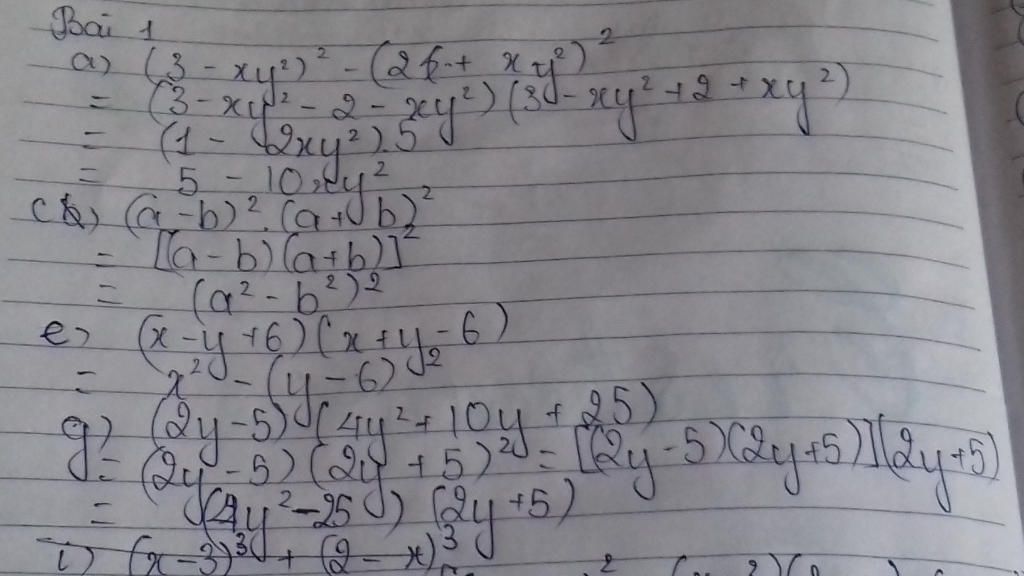 Bài 1
a) (3 - xy²)² - (2 + xy²)²
= (3 - xy² - 2 - xy²)(3 - xy² + 2 + xy²)
= (1 - 2xy²).5
= 5 - 10xy²
c) (a - b)².(a + b)²
= [(a - b)(a + b)]²
= (a² - b²)²
e) (x - y + 6)(x + y - 6)
= x² - (y - 6)²
g) (2y - 5)(4y² + 10y + 25)
= (2y - 5)(2y + 5)² = [(2y - 5)(2y + 5)](2y + 5)
= (4y² - 25)(2y + 5)
i) (x - 3)³ + (2 - x)³